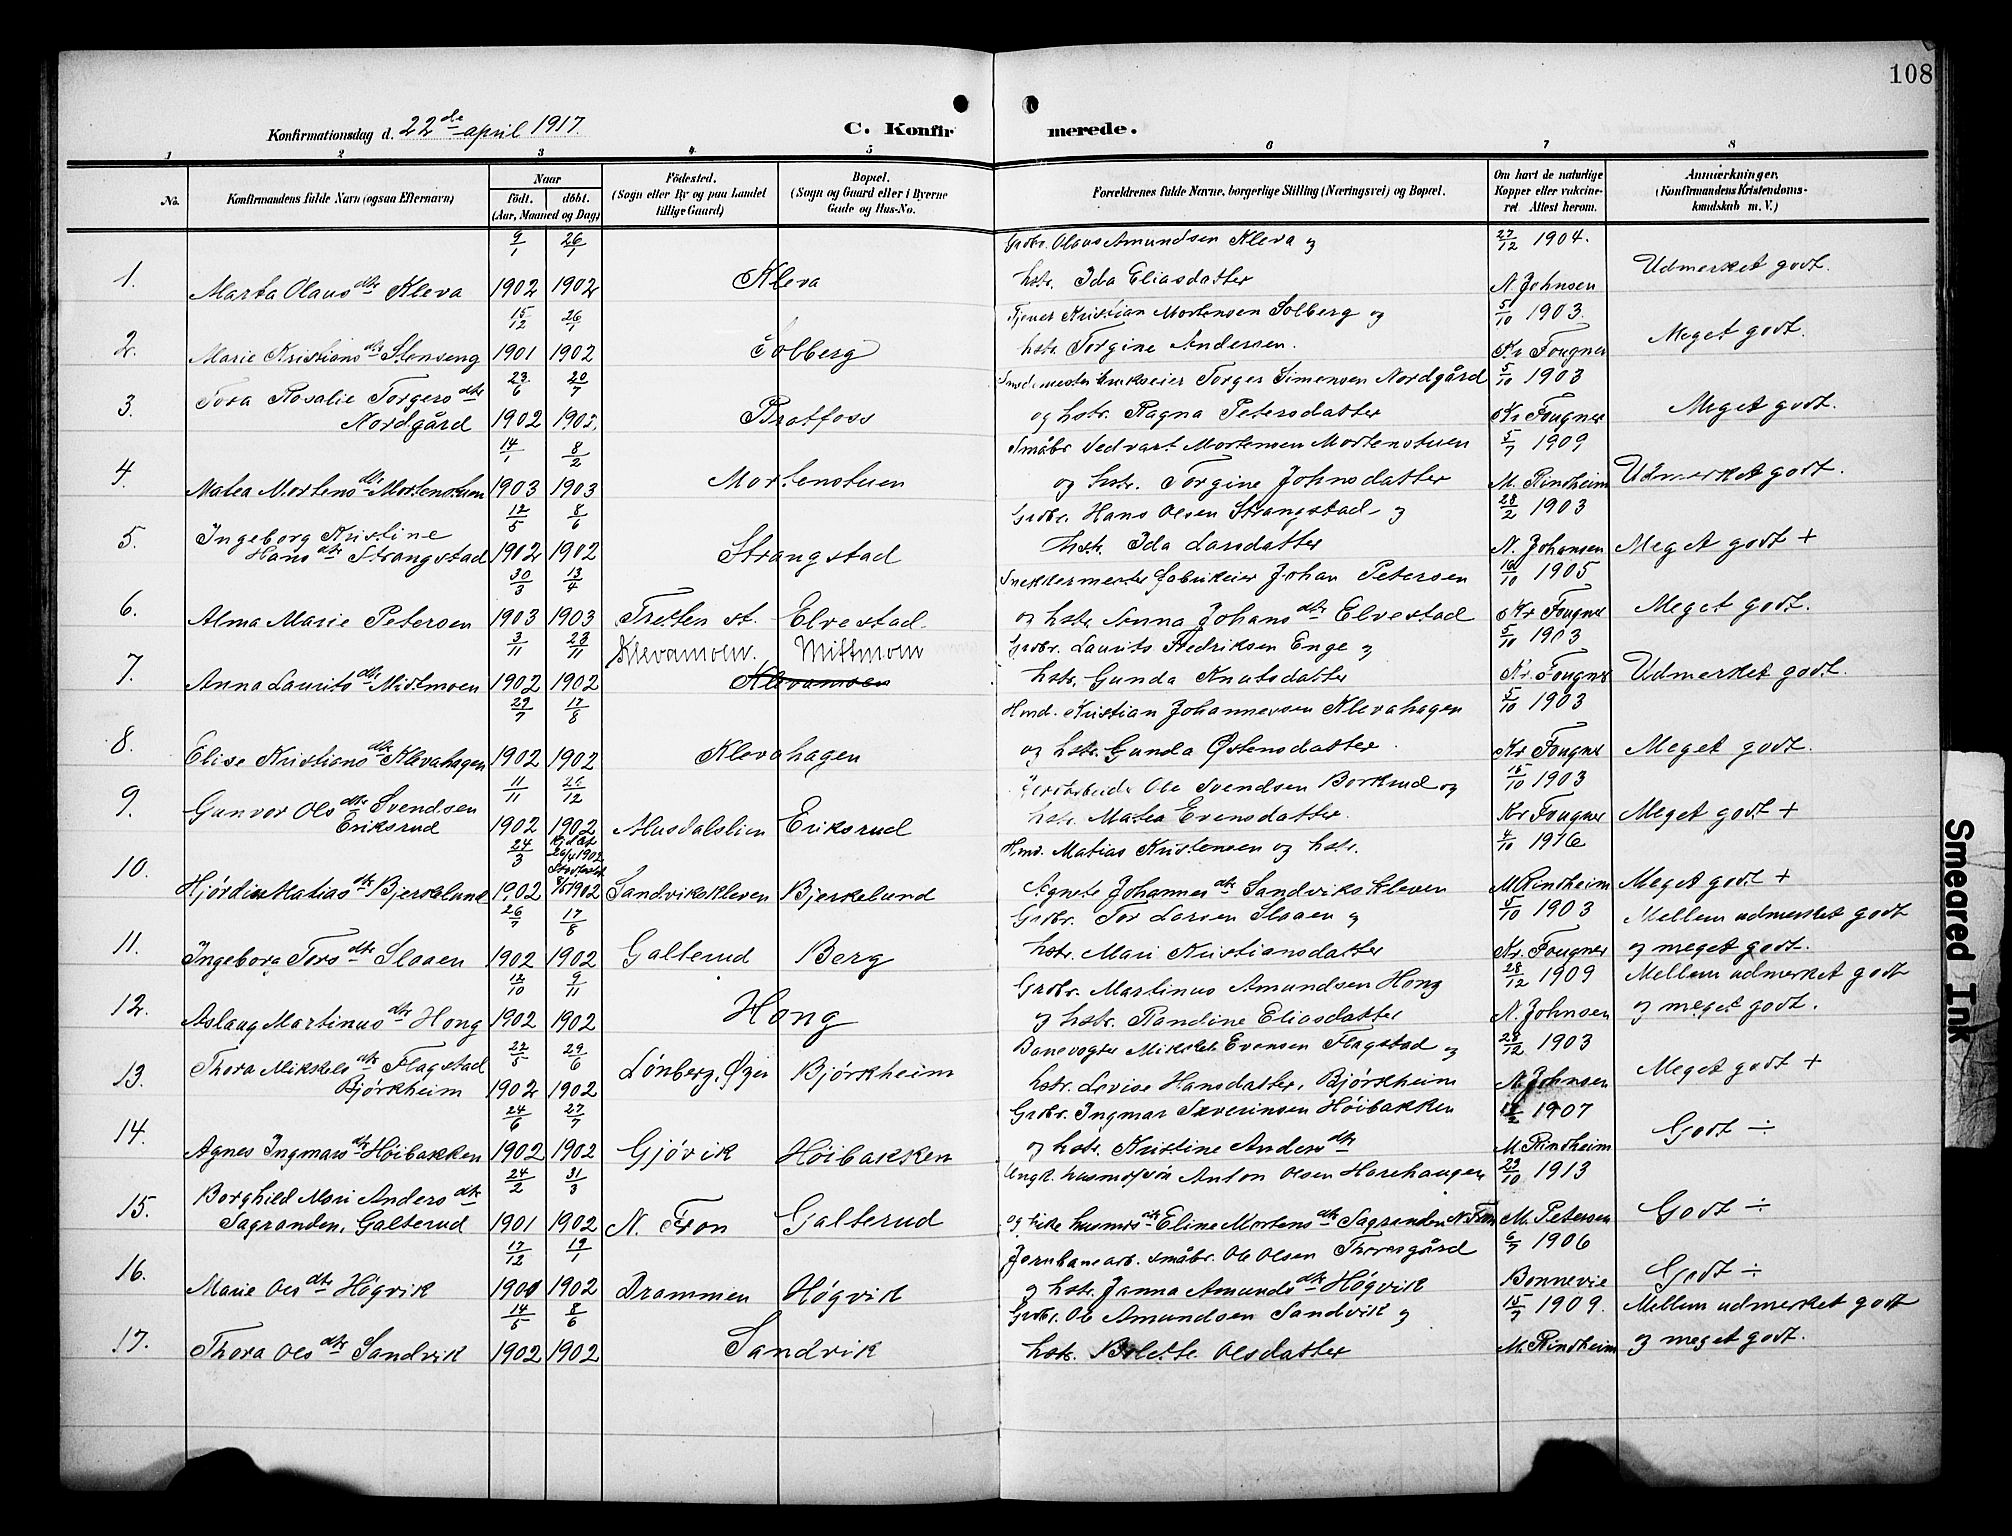 108
Konfirmationsdag d. 22de april 1917.
C. Konfirmerede.
1 2 3 4 5 6 7 8
No.
Konfirmandens fulde Navn (ogsaa Efternavn)
Naar
født. døbt.
(Aar, Maaned og Dag)
Fødested.
(Sogn eller By og paa Landet
tillige Gaard)
Bopæl.
(Sogn og Gaard eller i Byerne
Gade og Hus-No.
Forældrenes fulde Navne, borgerlige Stilling (Næringsvei) og Bopæl.
Om havt de naturlige
Kopper eller vakcineret
Attest herom.
Anmærkninger,
(Konfirmandens Kristendomskundskab
m. V.)
9/1 26/1 Grdbr. Olaus Amundsen Kleva og 27/12 1904.
1. Marta Olausdtr Kleva 1902 1902 Kleva hstr. Ida Eliasdatter N. Johnsen Udmerket godt.
15/12 26/1 Tjener Kristian Mortensen Solberg og 5/10 1903.
2. Marie Kristiansdtr Stenseng 1901 1902 Solberg hstr. Torgine Andersen. Kr Fougner Meget godt.
23/6 20/7 brukseier Torger Simensen Nordgård 5/10 1903
3. Tora Rosalie Torgersdtr
Nordgård 1902 1902. Bratfoss og hstr. Ragna Petersdatter Kr Fougner Meget godt.
14/1 8/2 Småbr Sedvart Mortensen Mortenstuen 5/7 1909
4. Matea Mortensdtr Mortenstuen 1903 1903 Mortenstuen og hstr. Torgine Johnsdatter M. Rindheim Udmerket godt.
12/5 8/6 Grdbr. Hans Olsen Strangstad og 28/2 1903
5. Ingeborg Kristine
Hansdtr Strangstad 1902 1902 Strangstad hstr. Ida Larsdatter N. Johansen Meget godt +
30/3 13/4 Snekkermester fabrikeier Johan Petersen 10/10 1905
6. Alma Marie Petersen 1903 1903 Tretten st. Elvestad. og hstr. Anna Johansdtr Elvestad Kr Fougner Meget godt.
3/11 23/11 Klevamoen. Mittmoen Grdbr. Laurits Fredriksen Enge og 5/10 1903
7. Anna Lauritsdtr Midtmoen 1902 1902 Klevamoen hstr. Gunda Knutsdatter Kr. Fougner Udmerket godt.
29/7 17/8 Hmd. Kristian Johannessen Klevahagen 5/10 1903
8. Elise Kristiansdtr Klevahagen 1902 1902 Klevahagen og hstr. Gunda Østensdatter. Kr Fougner Meget godt.
11/11 26/12 Ole Svendsen Borkrud og 15/10 1903
9. Gunvor Olsdtr Svendsen
Eriksrud 1902 1902 Musdalslien Eriksrud hstr. Matea Evensdatter. Kr Fougner Meget godt +
24/3 Hmd. Matias Kristensen og hstr. 4/10 1916
10. Hjørdis Matiasdtr Bjerkelund 1902 1902 Sandvikskleven Bjerkelund Agnete Johannesdtr Sandvikskleven M Rindheim Meget godt +
26/7 17/8 Grdbr. Tor Larsen Slaaen og 5/10 1903 Mellem udmerket godt
11. Ingeborg Torsdtr Slaaen 1902 1902 Galterud Berg hstr. Mari Kristiansdatter Kr. Fougner og meget godt.
12/10 9/11 Grdbr. Martinus Amundsen Hong 28/12 1909 Mellem udmerket godt
12. Aslaug Martinusdtr Hong 1902 1902 Hong og hstr. Randine Eliasdatter N. Johnsen og meget godt.
22/5 29/6 Banevogter Mikkel Evensen Flagstad og 28/12 1903
13. Thora Mikkelsdtr Flagstad
Bjørkheim 1902 1902 Lønberg, Øyer Bjørkheim hstr. Lovise Hansdatter, Bjørkheim N. Johnsen Meget godt +
24/6 27/7 Grdbr. Ingmar Severinsen Høibakken 12/2 1907
14. Agnes Ingmarsdtr Høibakken 1902 1902 Gjøvik Høibakken og hstr. Kristine Andersdtr M. Rindheim Godt ÷
24/2 31/3 Ungk. husmdssøn Anton Olsen Harehaugen 29/10 1913
15. Borghild Mari Andersdtr
Sagranden, Galterud 1901 1902 N. Fron Galterud og pike husmdsdtr Eline Mortensdtr Sagranden N. Fron M. Petersen Godt ÷
17/12 19/1 Jernbanearb. småbr. Ole Olsen Thoresgård 6/7 1906
16. Marie Olsdtr Høgvik 1901 1902 Drammen Høgvik og hstr. Janna Amundsdtr Høgvik Bonnevie Godt ÷
14/5 8/6 Grdbr. Ole Amundsen Sandvik og 15/7 1909. Mellem udmerket godt
17. Thora Olsdtr Sandvik 1902 1902 Sandvik hstr. Bolette Olsdatter M. Rindheim og meget godt.
Smeared Ink